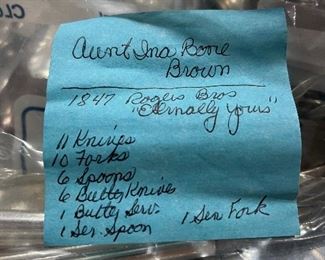 Aunt Ina Boone
Brown
1847 Rogers Bros
"Eternally Yours"
11 Knives
10 Forks
6 Spoons
6 Butter Knives
1 Butter Serv.
1 Ser. Spoon
1 Ser Fork